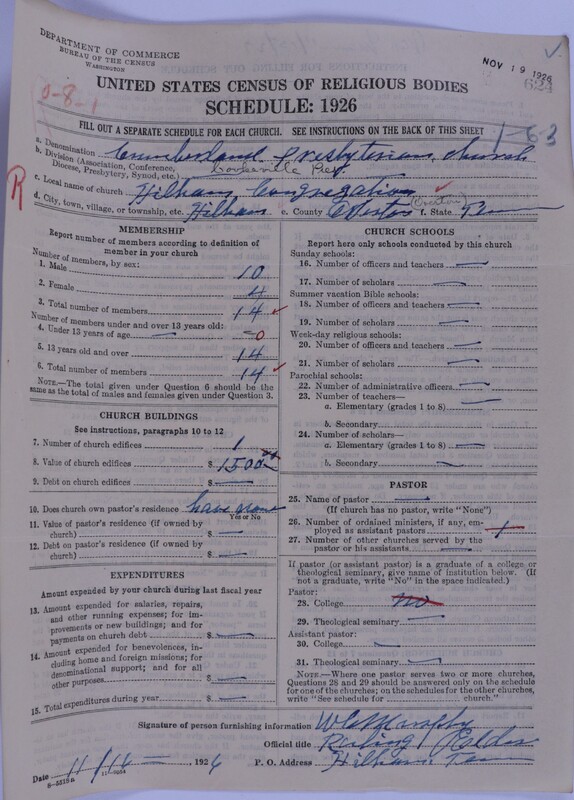 DEPARTMENT OF COMMERCE
BUREAU OF THE CENSUS
WASHINGTON
NOV 19 1926
624
UNITED STATES CENSUS OF RELIGIOUS BODIES
SCHEDULE: 1926
0-8-1
FILL OUT A SEPARATE SCHEDULE FOR EACH CHURCH. SEE INSTRUCTIONS ON THE BACK OF THIS SHEET
1-63
a. Denomination Cumberland Presbyterian Church
b. Division (Association, Conference, Diocese, Presbytery, Synod, etc.) Cookeville Pres.
R
c. Local name of church Hilham Congregation
d. City, town, village, or township, etc. Hilham e. County (Overton) f. State Tenn
MEMBERSHIP
Report number of members according to definition of member in your church
Number of members, by sex:
1. Male 10
2. Female 4
3. Total number of members 14
Number of members under and over 13 years old:
4. Under 13 years of age 0
5. 13 years old and over 14
6. Total number of members 14
NOTE.—The total given under Question 6 should be the same as the total of males and females given under Question 3.
CHURCH BUILDINGS
See instructions, paragraphs 10 to 12
7. Number of church edifices 1
8. Value of church edifices $ 1500
9. Debt on church edifices $
10. Does church own pastor's residence? have none
Yes or No
11. Value of pastor's residence (if owned by church) $
12. Debt on pastor's residence (if owned by church) $
EXPENDITURES
Amount expended by your church during last fiscal year
13. Amount expended for salaries, repairs, and other running expenses; for improvements or new buildings; and for payments on church debt $
14. Amount expended for benevolences, including home and foreign missions; for denominational support; and for all other purposes $
15. Total expenditures during year $
CHURCH SCHOOLS
Report here only schools conducted by this church
Sunday schools:
16. Number of officers and teachers
17. Number of scholars
Summer vacation Bible schools:
18. Number of officers and teachers
19. Number of scholars
Week-day religious schools:
20. Number of officers and teachers
21. Number of scholars
Parochial schools:
22. Number of administrative officers
23. Number of teachers—
a. Elementary (grades 1 to 8)
b. Secondary
24. Number of scholars—
a. Elementary (grades 1 to 8)
b. Secondary
PASTOR
25. Name of pastor
(If church has no pastor, write "None")
26. Number of ordained ministers, if any, employed as assistant pastors 1
27. Number of other churches served by the pastor or his assistants
If pastor (or assistant pastor) is a graduate of a college or theological seminary, give name of institution below. (If not a graduate, write "No" in the space indicated.)
Pastor:
28. College No
29. Theological seminary
Assistant pastor:
30. College
31. Theological seminary
NOTE.—Where one pastor serves two or more churches, Questions 28 and 29 should be answered only on the schedule for one of the churches; on the schedules for the other churches, write "See schedule for church."
Signature of person furnishing information
Official title Ruling Elder
Date 11/16 1926 P. O. Address Hilham, Tenn
8-5518a 11-9054